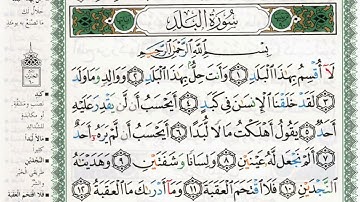 سُورَةُ الْبَلَدِ
بِسْمِ اللَّهِ الرَّحْمَٰنِ الرَّحِيمِ
لَا أُقْسِمُ بِهَٰذَا الْبَلَدِ ١ وَأَنْتَ حِلٌّ بِهَٰذَا الْبَلَدِ ٢ وَوَالِدٍ وَمَا وَلَدَ
٣ لَقَدْ خَلَقْنَا الْإِنْسَٰنَ فِي كَبَدٍ ٤ أَيَحْسَبُ أَنْ لَنْ يَقْدِرَ عَلَيْهِ
أَحَدٌ ٥ يَقُولُ أَهْلَكْتُ مَالًا لُبَدًا ٦ أَيَحْسَبُ أَنْ لَمْ يَرَهُ أَحَدٌ
٧ أَلَمْ نَجْعَلْ لَهُ عَيْنَيْنِ ٨ وَلِسَانًا وَشَفَتَيْنِ ٩ وَهَدَيْنَٰهُ
النَّجْدَيْنِ ١٠ فَلَا اقْتَحَمَ الْعَقَبَةَ ١١ وَمَا أَدْرَىٰكَ مَا الْعَقَبَةُ ١٢
كبد
لبدا
النجدين
فلا اقتحم العقبة